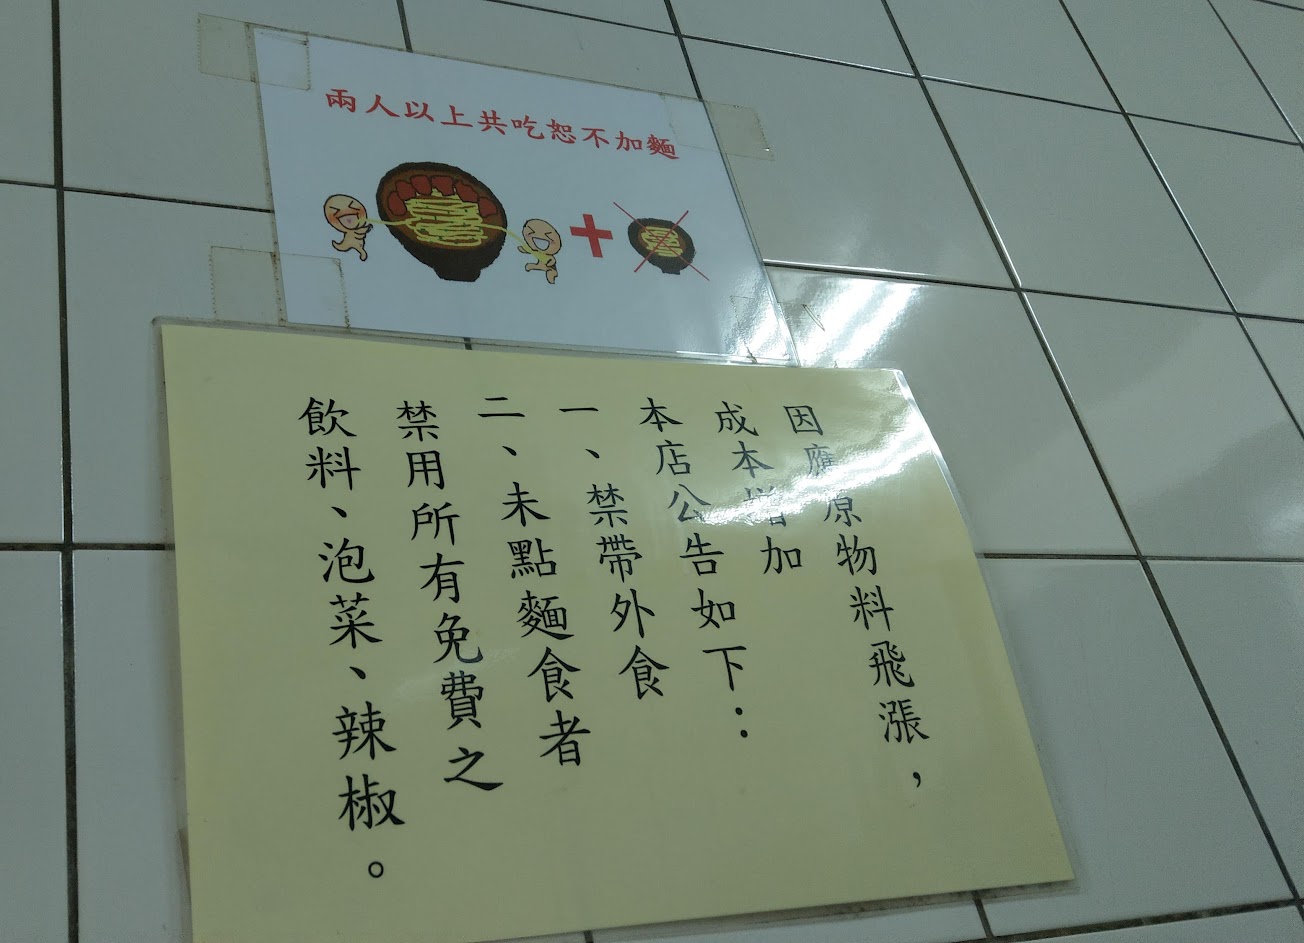 兩人以上共吃恕不加麵
因應原物料飛漲，
成本增加
本店公告如下：
一、禁帶外食
二、未點麵食者
禁用所有免費之
飲料、泡菜、辣椒。